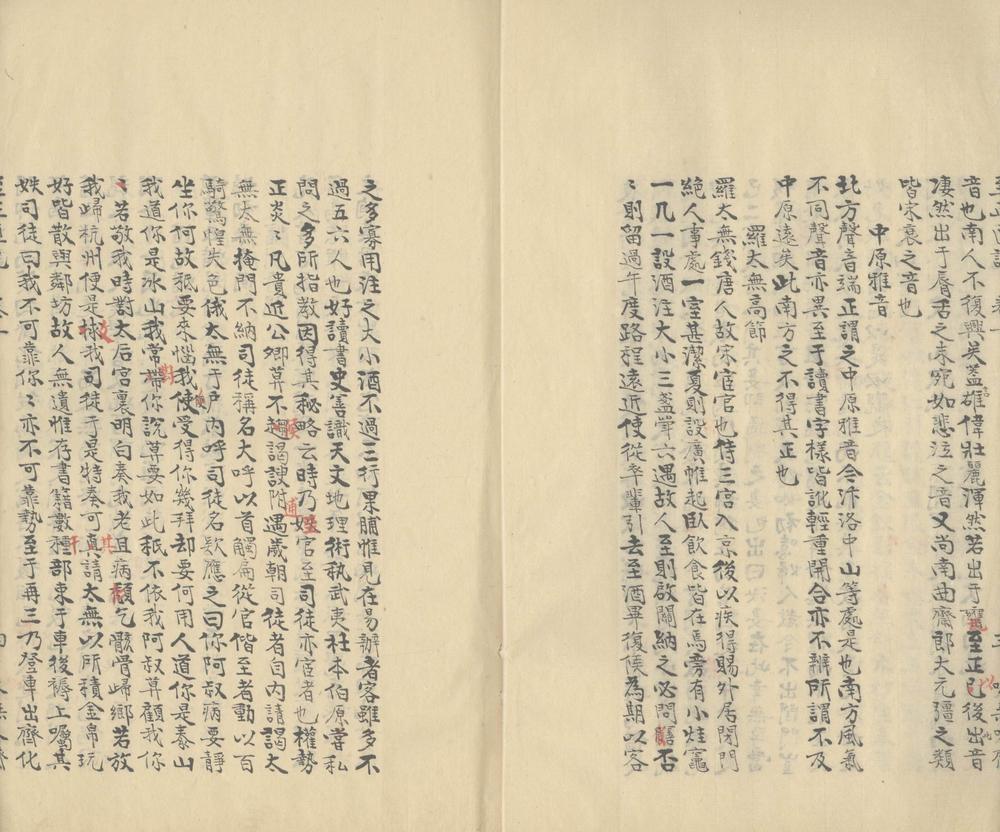 音也南人不復興矣蓋雄偉壯麗渾然若出于甕至正已後出音
凄然出于唇舌之末宛如悲泣之音又尚南曲齋郎大元彊之類
皆宋衰之音也
中原雅音
北方聲音端正謂之中原雅音今汴洛中山等處是也南方風氣
不同聲音亦異至于讀書字樣皆訛輕重開合亦不辨所謂不及
中原遠矣此南方之不得其正也
羅太無高節
羅太無錢唐人故宋宦官也侍三宮入京後以疾得賜外居閉門
絕人事處一室甚潔夏則設廣帷起臥飲食皆在焉旁有小灶竈
一几一設酒注大小三盞箸六遇故人至則啟關納之必問膳否
〻則留過午度路程遠近使從卒輩引去至酒畢復候為期以客
之多寡用注之大小酒不過三行果脯惟見在易辦者客雖多不
過五六人也好讀書史善識天文地理術埶武夷杜本伯原嘗私
問之多所指教因得其秘略云時乃姪官至司徒亦宦者也權勢
正炎〻凡貴近公卿莫不趨謁諛附遇歲朝司徒者自內請謁太
無太無掩門不納司徒稱名大呼以首觸扁從官偕至者動以百
騎驚惶失色俄太無于戶內呼司徒名欵應之曰你阿叔病要靜
坐你何故秪要來惱我使受得你幾拜却要何用人道你是泰山
我道你是冰山我常對你說莫要如此秪不依我阿叔莫顧我你
〻若敬我時對太后宮裏明白奏我老且病頹乞骸骨歸鄉若放
我歸杭州便是救我司徒于是特奏可其請太無以所積金帛玩
好皆散與鄰坊故人無遺惟存書籍數種部束于車後褥上囑其
姪司徒曰我不可靠你〻亦不可靠勢至于再三乃登車出齊化